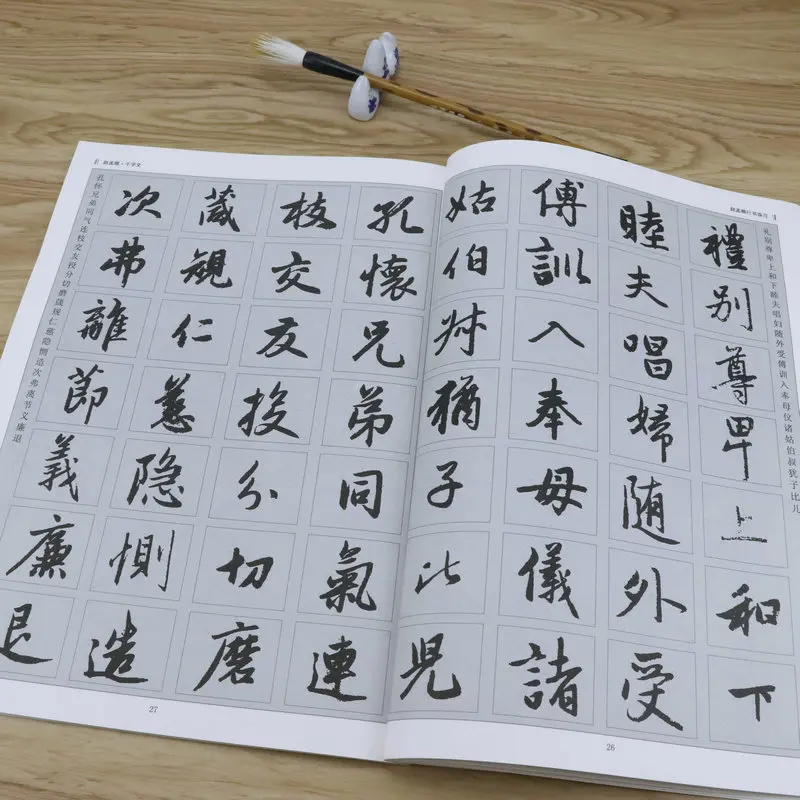 礼别尊卑上和下睦夫唱妇随外受傅训入奉母仪诸姑伯叔犹子比儿
禮别尊卑上和下
睦夫唱婦随外受
傅訓入奉母儀諸
姑伯叔猶子比兒
26
赵孟頫·千字文
孔懷兄弟同氣連
枝交友投分切磨
箴規仁慈隐惻造
次弗離節義廉退
孔怀兄弟同气连枝交友投分切磨箴规仁慈隐恻造次弗离节义廉退
27